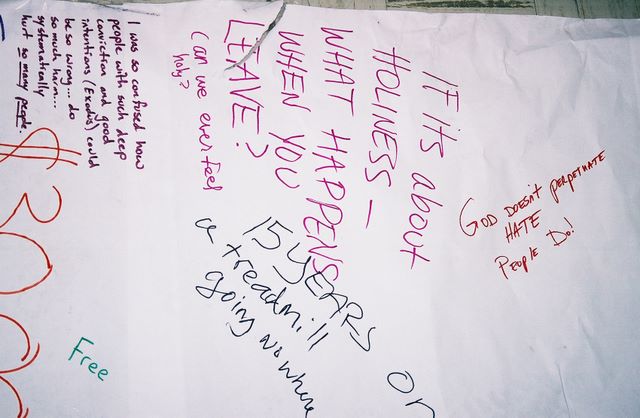 I was so confused how
people with such deep
conviction and good
intentions (Exodus) could
be so wrong... do
so much harm...
systematically
hurt so many people.
$300
IF its about
HOLINESS -
WHAT HAPPENS
WHEN YOU
LEAVE?
Can we ever feel
holy?
GOD DOESN'T PERPETUATE
HATE
PEOPLE DO!
15 YEARS on
a treadmill
going nowhere
Free